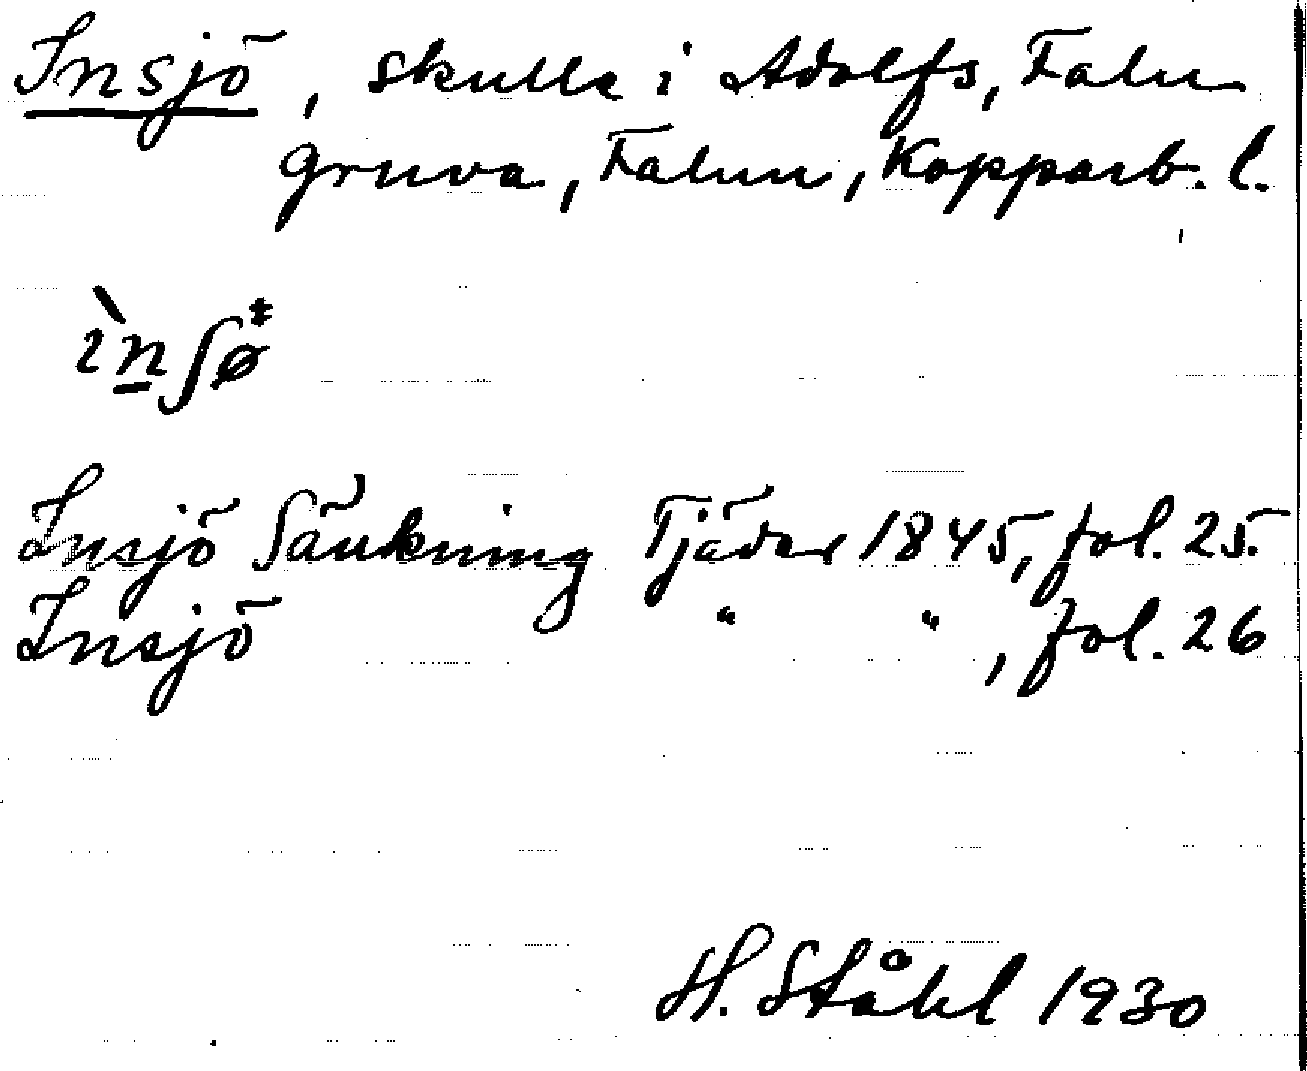 Insjö, skulle i Adolfs, Falu
gruva, Falun, Kopparb. l.
ìn̲ʃø
Insjö Säukning Tjäder 1845, fol. 25.
Insjö " " , fol. 26
H. Ståhl 1930